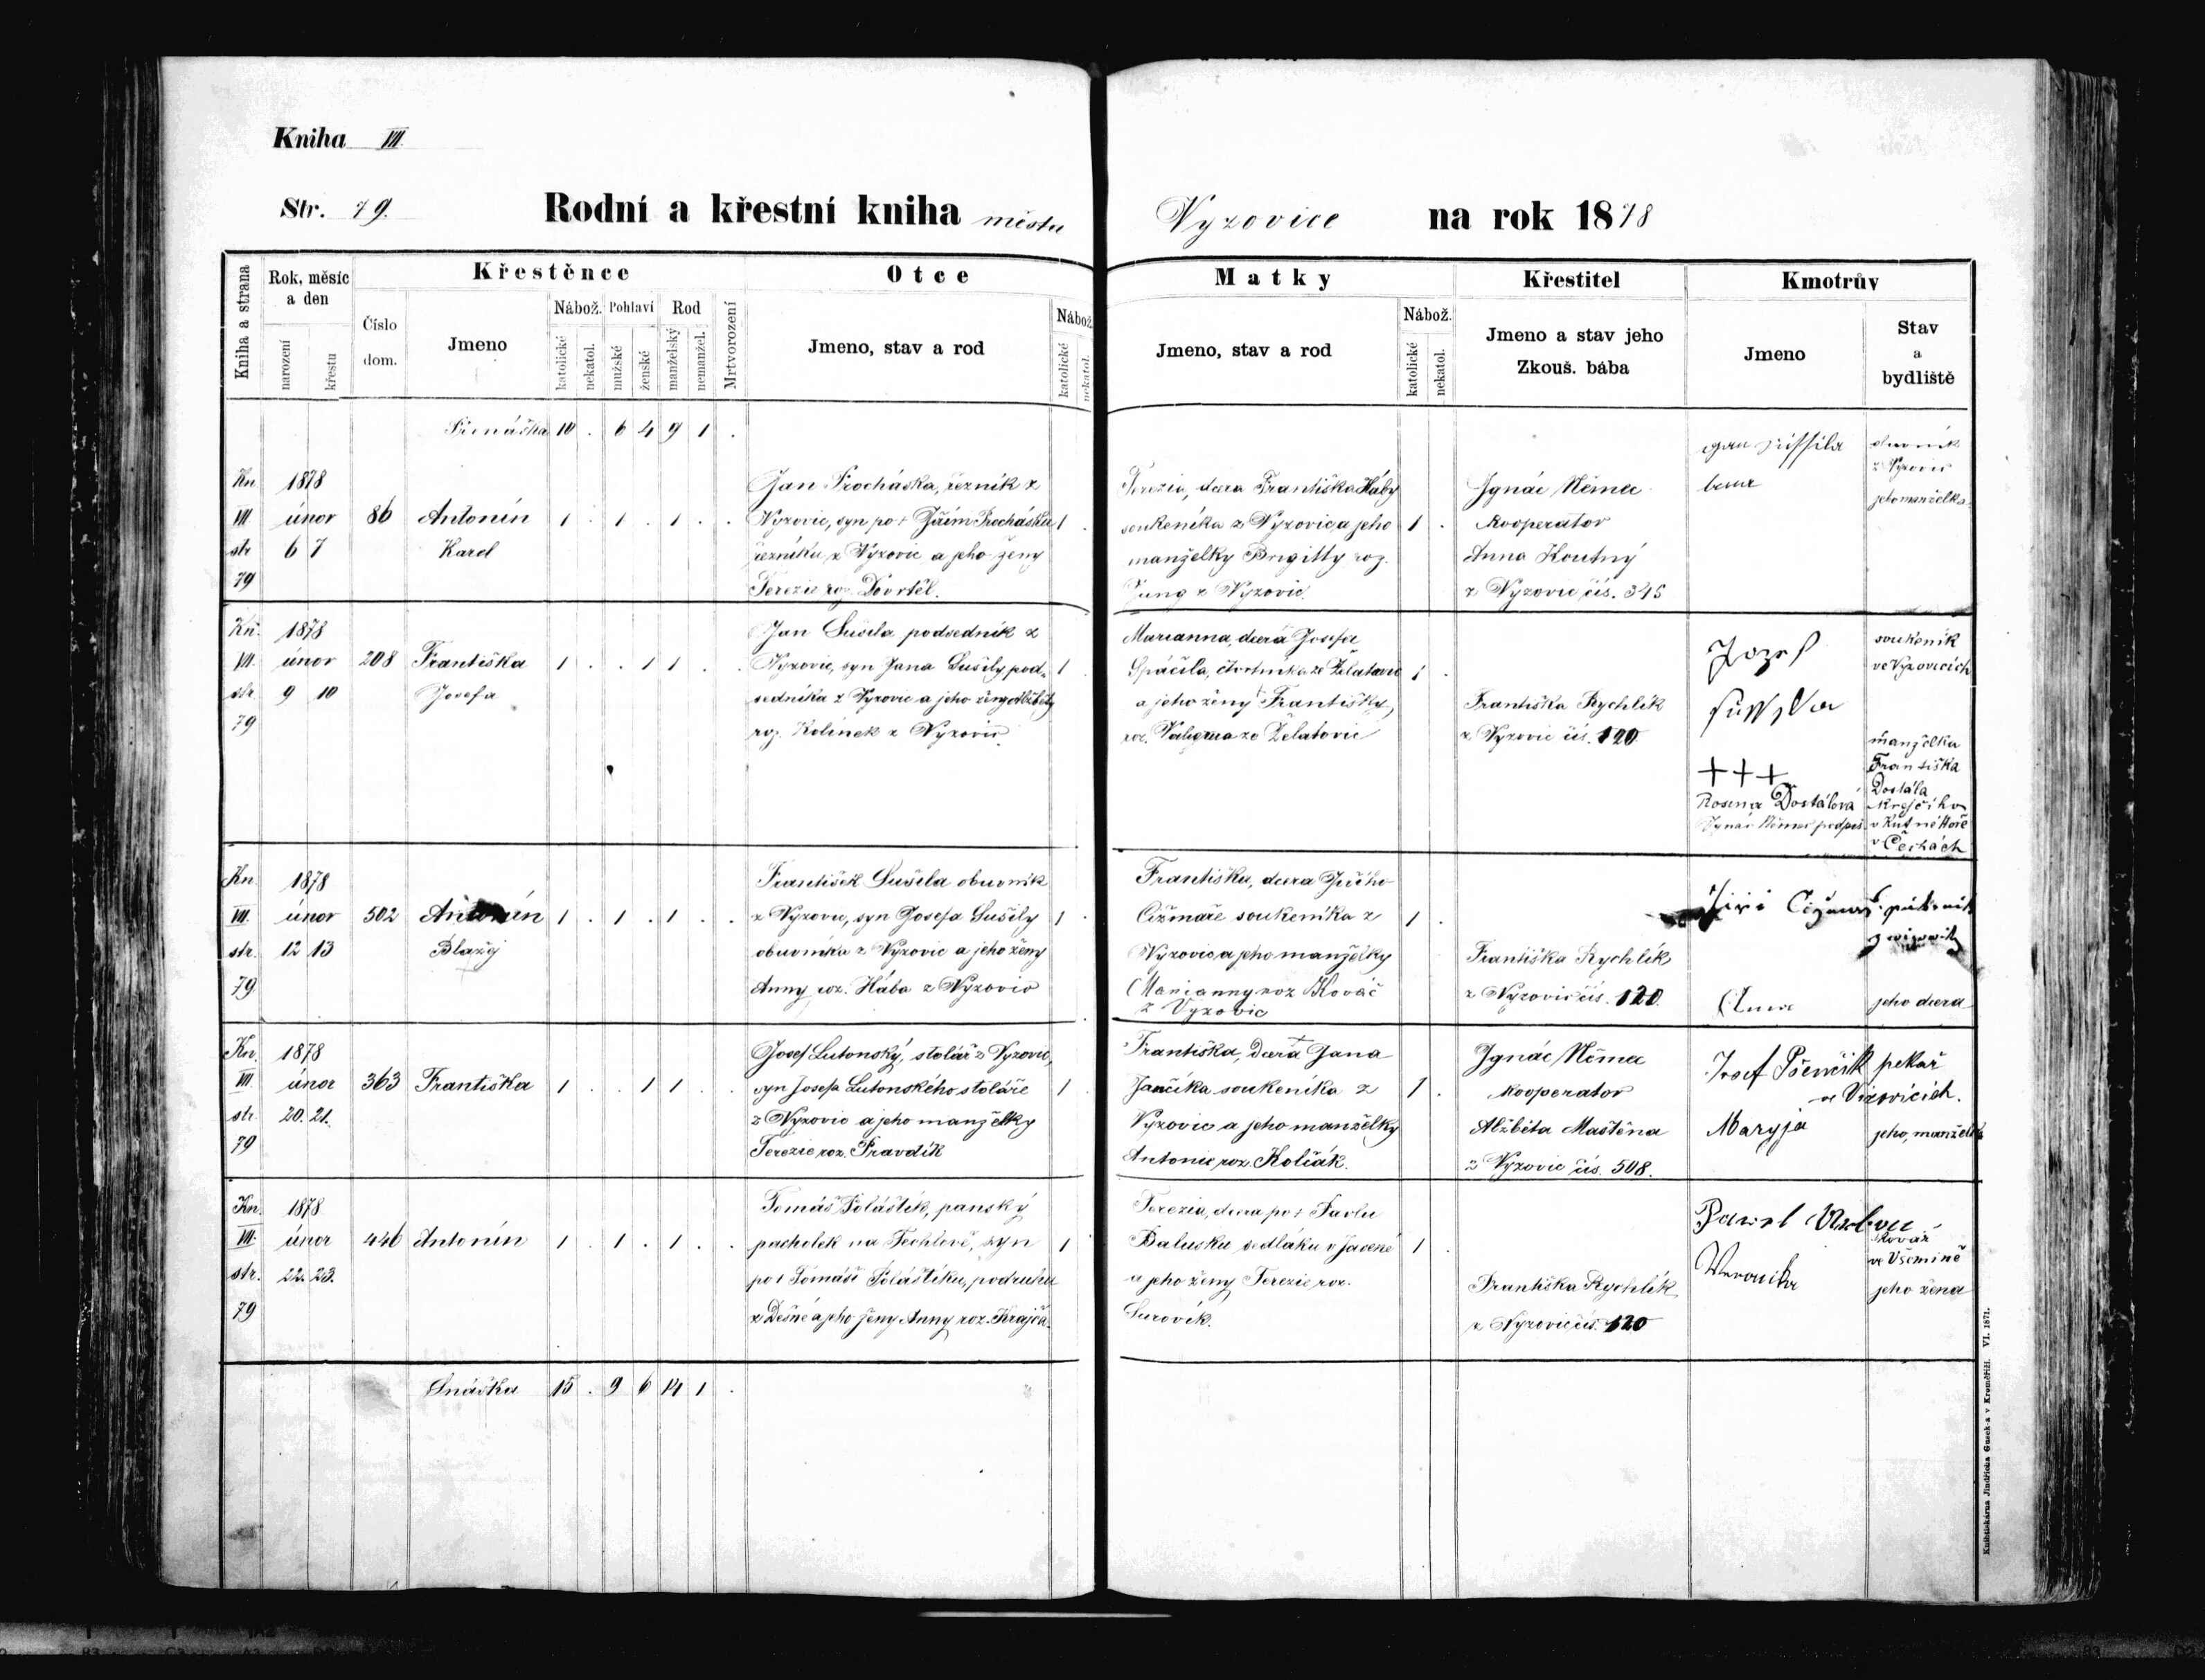 Kniha VII.
Str. 79.
Rodní a křestní kniha města
Vyzovice na rok 1878
Kniha a strana
Rok, měsíc
a den
narození
křestu
Křestěnce
Číslo
dom.
Jmeno
Nábož.
katolické
nekatol.
Pohlaví
mužské
ženské
Rod
manželský
nemanžel.
Mrtvorození
Otce
Jmeno, stav a rod
Nábož.
katolické
nekatol.
Matky
Jmeno, stav a rod
Nábož.
katolické
nekatol.
Křestitel
Jmeno a stav jeho
Zkouš. bába
Kmotrův
Jmeno
Stav
a
bydliště
Přenáška 10 . 6 4 9 1 .
Kn. VII str. 79
1878
únor
6 7
86
Antonín
Karel
1 . 1 . 1 . .
Jan Procházka, řezník z
Vyzovic, syn po † Jiřím Procházku
řezníku z Vyzovic a jeho ženy
Terezie roz. Dovrtěl.
1
Terezia, dcera Františka Háby
soukeníka z Vyzovic a jeho
manželky Brigitty roz.
Jung z Vyzovic.
1 .
Ignác Němec
Kooperátor
Anna Koutný
z Vyzovic čís. 345
obuvník
z Vyzovic
jeho manželka
Kn. VII. str. 79
1878
únor
9 10
208
Františka
Josefa
1 . . 1 1 . .
Jan Sušila podsedník z
Vyzovic, syn Jana Sušily pod-
sedníka z Vyzovic a jeho ženy Alžběty
roz. Kolínek z Vyzovic.
1
Marianna, dcera Josefa
Spáčila, čtvrtníka ze Želatovic
a jeho ženy Františky,
roz. ze Želatovic
1 .
Františka Rychlík
z Vyzovic čís. 120
Jozef
soukeník
ve Vyzovicích
+++
Rosina Dostálová
Ignác Němec podpis.
manželka
Františka
Dostála
krejčího
v Kutné Hoře
v Čechách
Kn. VII. str. 79
1878
únor
12 13
502
Antonín
Blažej
1 . 1 . 1 . .
František Sušila obuvník
z Vyzovic, syn Josefa Sušily
obuvníka z Vyzovic a jeho ženy
Anny roz. Hába z Vyzovic
1
Františka, dcera Jiřího
Čižmaře soukeníka z
Vyzovic a jeho manželky
Marianny roz Kovář
z Vyzovic
1 .
Františka Rychlík
z Vyzovic čís. 120.
Jiří
Anna
jeho dcera
Kn. VII. str. 79
1878
únor
20. 21.
363
Františka
1 . . 1 1 . .
Josef Lutonský, stolář z Vyzovic,
syn Josefa Lutonského stoláře
z Vyzovic a jeho manželky
Terezie roz. Pravdík
1
Františka, dcera † Jana
Jančíka soukeníka z
Vyzovic a jeho manželky
Antonie roz. Kolčák.
1 .
Ignác Němec
kooperator
Alžběta Maštěna
z Vyzovic čís. 508.
Josef Pšenčík
Maryja
pekař
ve Vizovicich.
jeho manželka
Kn. VII. str. 79
1878
únor
22. 23.
446
Antonín
1 . 1 . 1 . .
Tomáš Poláštík, panský
pacholek na Těchlově, syn
po † Tomáši Poláštíku, podruhu
z Dešné a jeho ženy Anny roz. Krajča.
1
Terezia, dcera po † Pavlu
Balusku sedláku v Jasené
a jeho ženy Terezie roz.
Surovík.
1 .
Františka Rychlík
z Vyzovic čís. 120
Pawel
Veronika
kovář
ve Všemině
jeho žena
Snáška 15 . 9 6 14 1 .
Knihtiskárna Jindřicha Gusek-a v Kroměříži. VI. 1871.